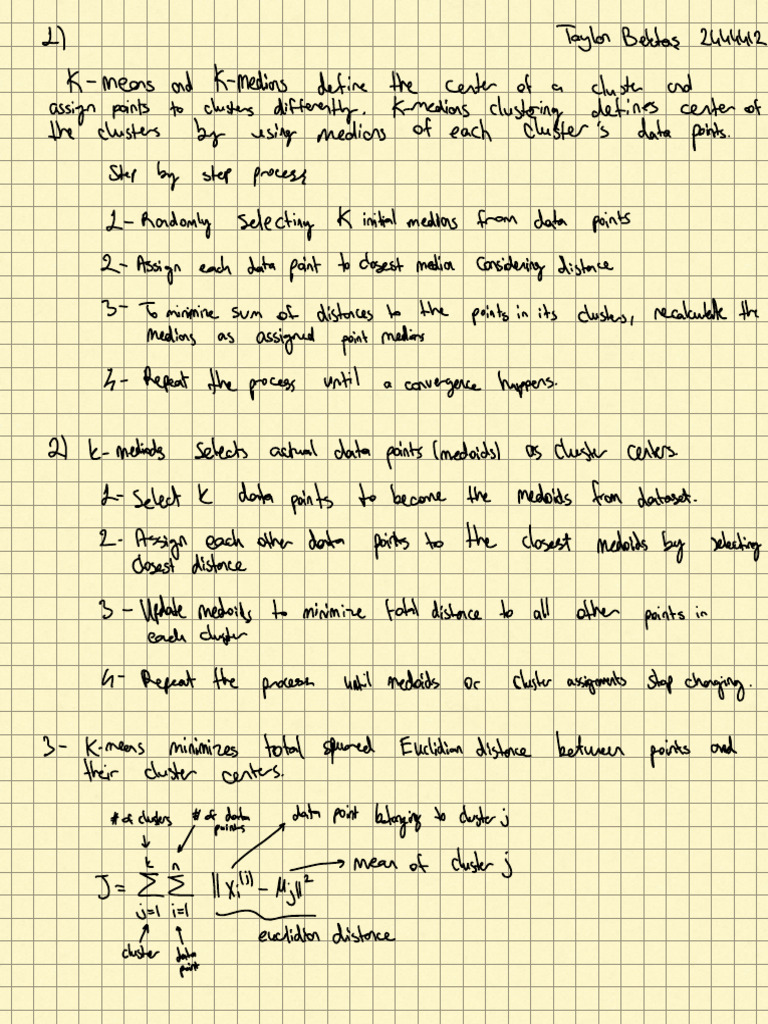 1) Taylan Bektaş 2444412
K-means and K-medians define the center of a cluster and
assign points to clusters differently. K-medians clustering defines center of
the clusters by using medians of each cluster's data points.
Step by step process
1- Randomly selecting K initial medians from data points
2- Assign each data point to closest median considering distance
3- To minimize sum of distances to the points in its clusters, recalculate the
medians as assigned point medians
4- Repeat the process until a convergence happens.
2) k-medoids selects actual data points (medoids) as cluster centers
1- Select k data points to become the medoids from dataset.
2- Assign each other data points to the closest medoids by selecting
closest distance
3- Update medoids to minimize total distance to all other points in
each cluster
4- Repeat the process until medoids or cluster assignments stop changing.
3- K-means minimizes total squared Euclidian distance between points and
their cluster centers.
# of clusters # of data points data point belonging to cluster j
mean of cluster j
J = Σ_{j=1}^{k} Σ_{i=1}^{n} ||x_i^{(j)} - μ_j||^2
euclidian distance
cluster data point